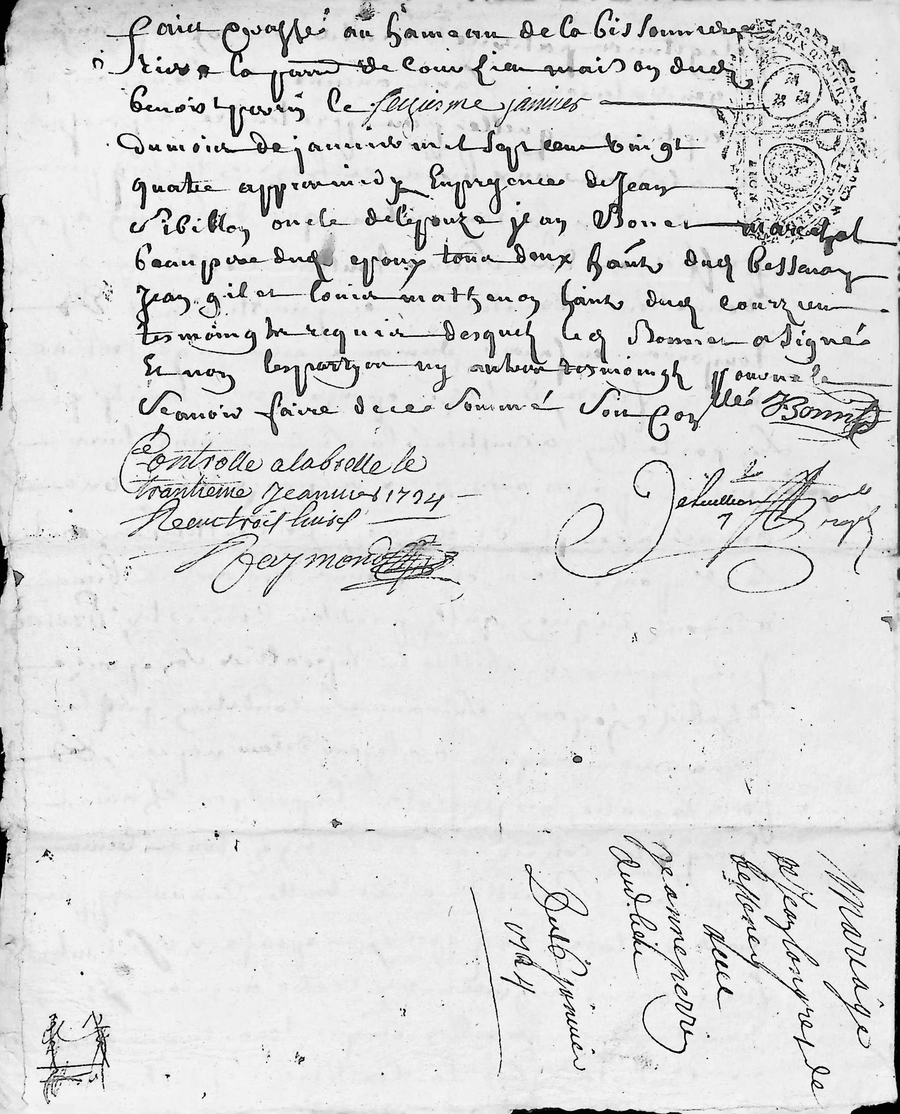 faict & passé au hameau de la bissonniere
a la parrᵉ de maison dud
benoist perrin le seizieme janvier
du mois de janvier mil sept cens vingt
quatre appres midy En presence de Jean
oncle de l'epouze jean Bonnet marechal
beaupere dud epoux tous deux hantˢ dud bessenay
Jean gilet louis mathevon hantˢ dud courzieu
tesmoingts requis desquels led Bonnet a signé
Et non les partyes ny autres tesmoingts pour ne le
sçavoir faire de ce sommé son
JBonnet
Controlle a labrelle le
trantieme Jeanvier 1724
Receu trois livres
Raymond
Mariage
de Jean longres de
besseney
avec
Jeanne perrin
dud lieu
Du 16 janvier
1724